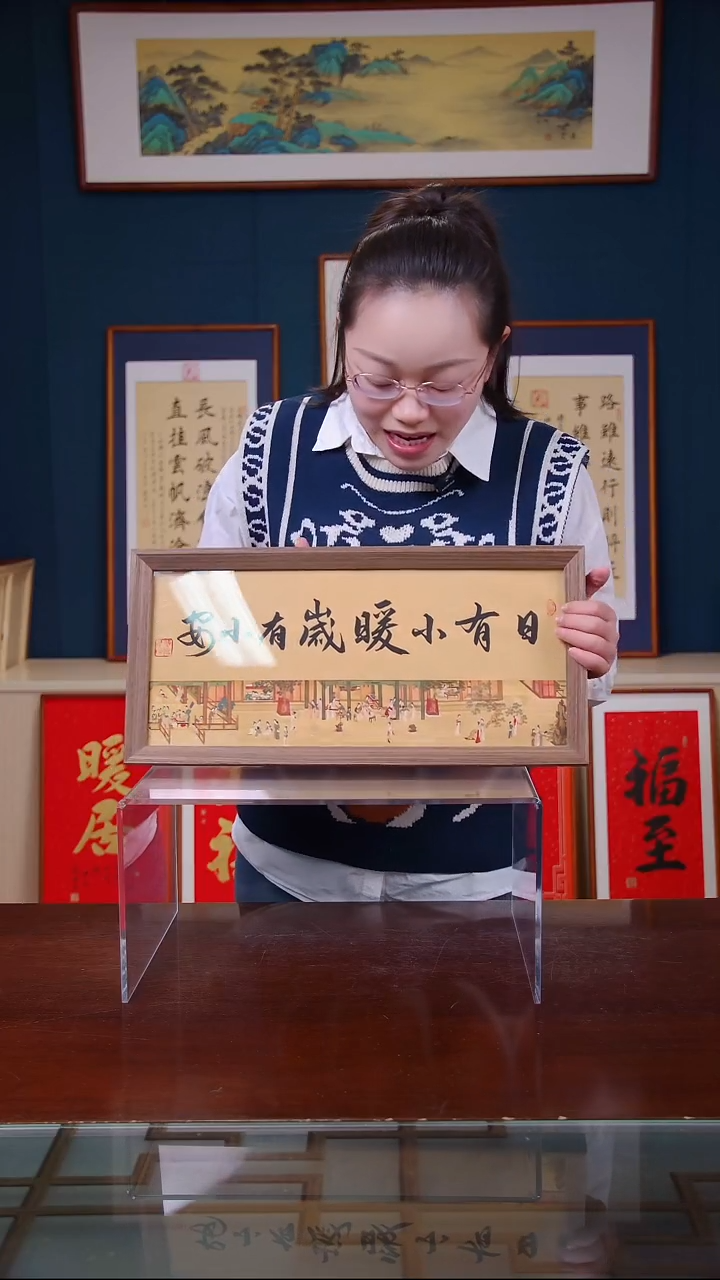 日有小暖嵗有小安
長風破浪
直挂雲帆濟滄
路雖遠行則將至
事雖
暖居
福至